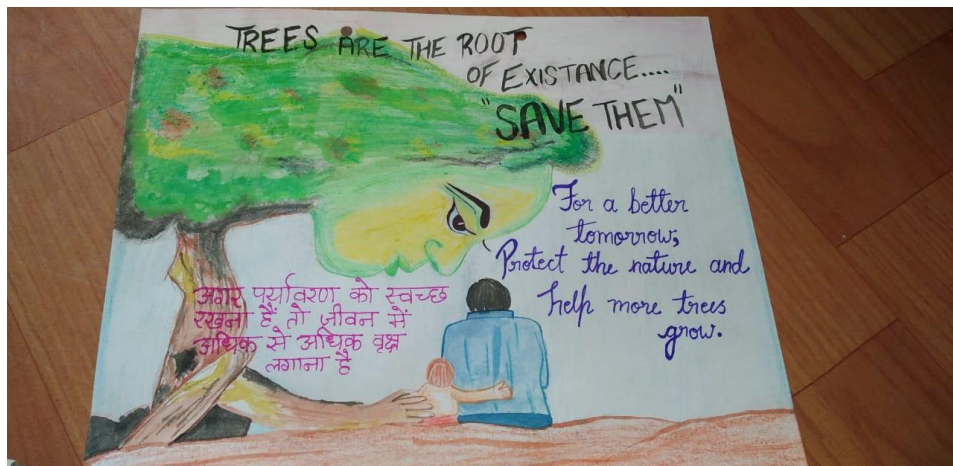 TREES ARE THE ROOT
OF EXISTANCE....
"SAVE THEM"
For a better
tomorrow,
Protect the nature and
help more trees
grow.
अगर पर्यावरण को स्वच्छ
रखना हैं तो जीवन में
अधिक से अधिक वृक्ष
लगाना है